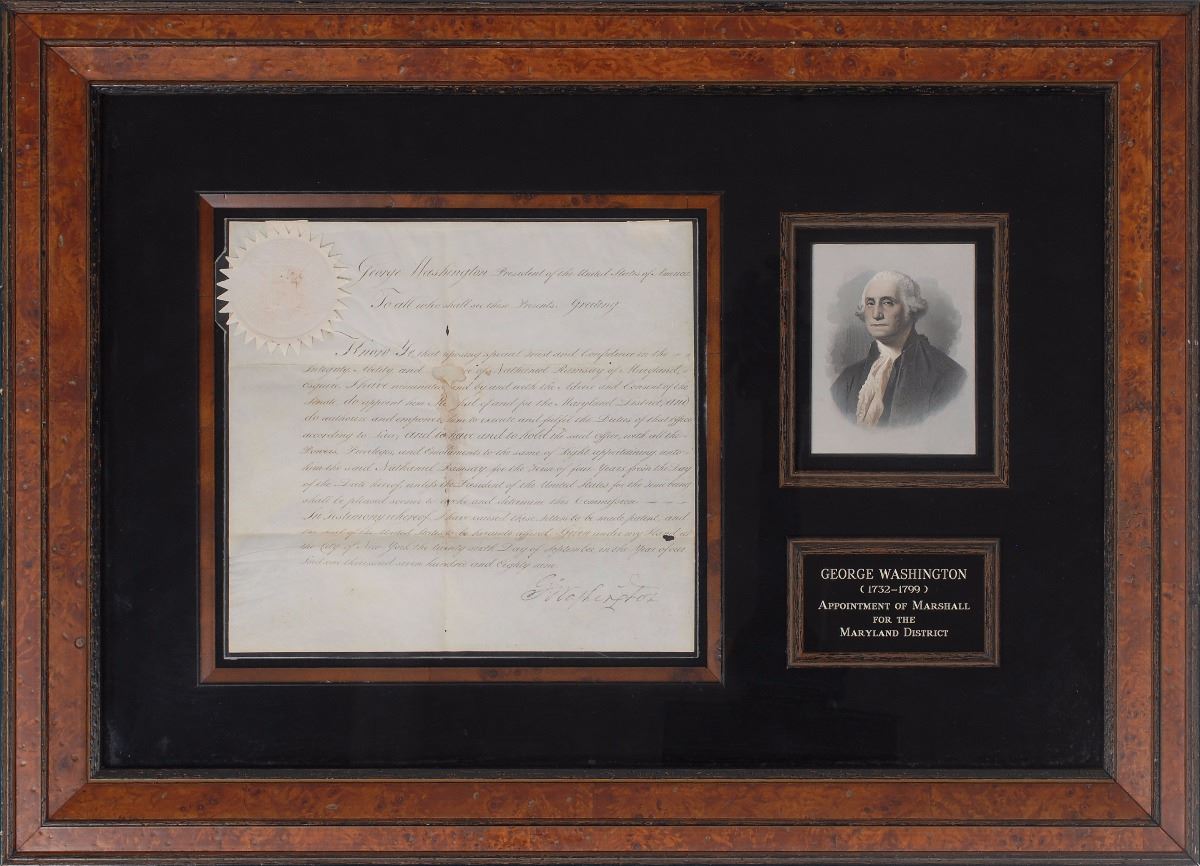 George Washington President of the United States of America
To all who shall see these Presents. Greeting
Know Ye, that reposing special Trust and Confidence in the
Integrity, Ability and of Nathaniel Ramsay of Maryland,
Esquire, I have nominated and by and with the Advice and Consent of the
Senate, do appoint him Marshal of and for the Maryland District, and
do authorize and empower him to execute and fulfil the Duties of that office
according to Law; and to have and to hold the said Office, with all the
Powers, Privileges, and Emoluments to the same of Right appertaining unto
him the said Nathaniel Ramsay, for the Term of four Years from the Day
of the Date hereof, unless the President of the United States for the time being
shall be pleased sooner to revoke and determine this Commission
In Testimony whereof, I have caused these Letters to be made patent, and
the seal of the United States to be hereunto affixed. Given under my Hand at
the City of New York the twenty sixth Day of September in the Year of our
Lord one thousand seven hundred and Eighty nine
Go Washington
GEORGE WASHINGTON
(1732–1799)
APPOINTMENT OF MARSHALL
FOR THE
MARYLAND DISTRICT